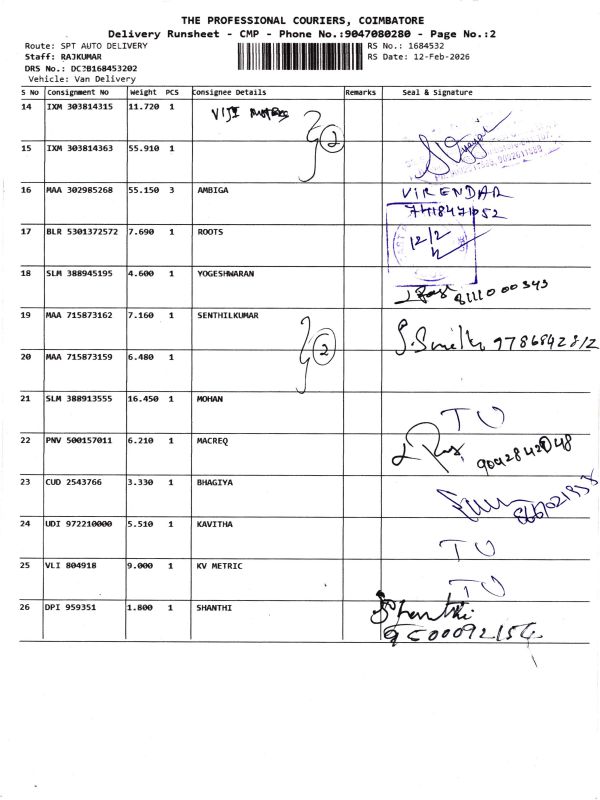 THE PROFESSIONAL COURIERS, COIMBATORE
Delivery Runsheet - CMP - Phone No.:9047080280 - Page No.:2
Route: SPT AUTO DELIVERY RS No.: 1684532
Staff: RAJKUMAR RS Date: 12-Feb-2026
DRS No.: DCBB168453202
Vehicle: Van Delivery
S No Consignment No Weight PCS Consignee Details Remarks Seal & Signature
14 IXM 303814315 11.720 1 VIJI MOTORS
2
15 IXM 303814363 55.910 1
16 MAA 302985268 55.150 3 AMBIGA VIRENDAR
7418471052
17 BLR 5301372572 7.690 1 ROOTS 12/2
18 SLM 388945195 4.600 1 YOGESHWARAN 8111000343
19 MAA 715873162 7.160 1 SENTHILKUMAR 9786842812
2
20 MAA 715873159 6.480 1
21 SLM 388913555 16.450 1 MOHAN TU
22 PNV 500157011 6.210 1 MACREQ
23 CUD 2543766 3.330 1 BHAGIYA
24 UDI 972210000 5.510 1 KAVITHA TU
25 VLI 804918 9.000 1 KV METRIC TU
26 DPI 959351 1.800 1 SHANTHI Shanthi